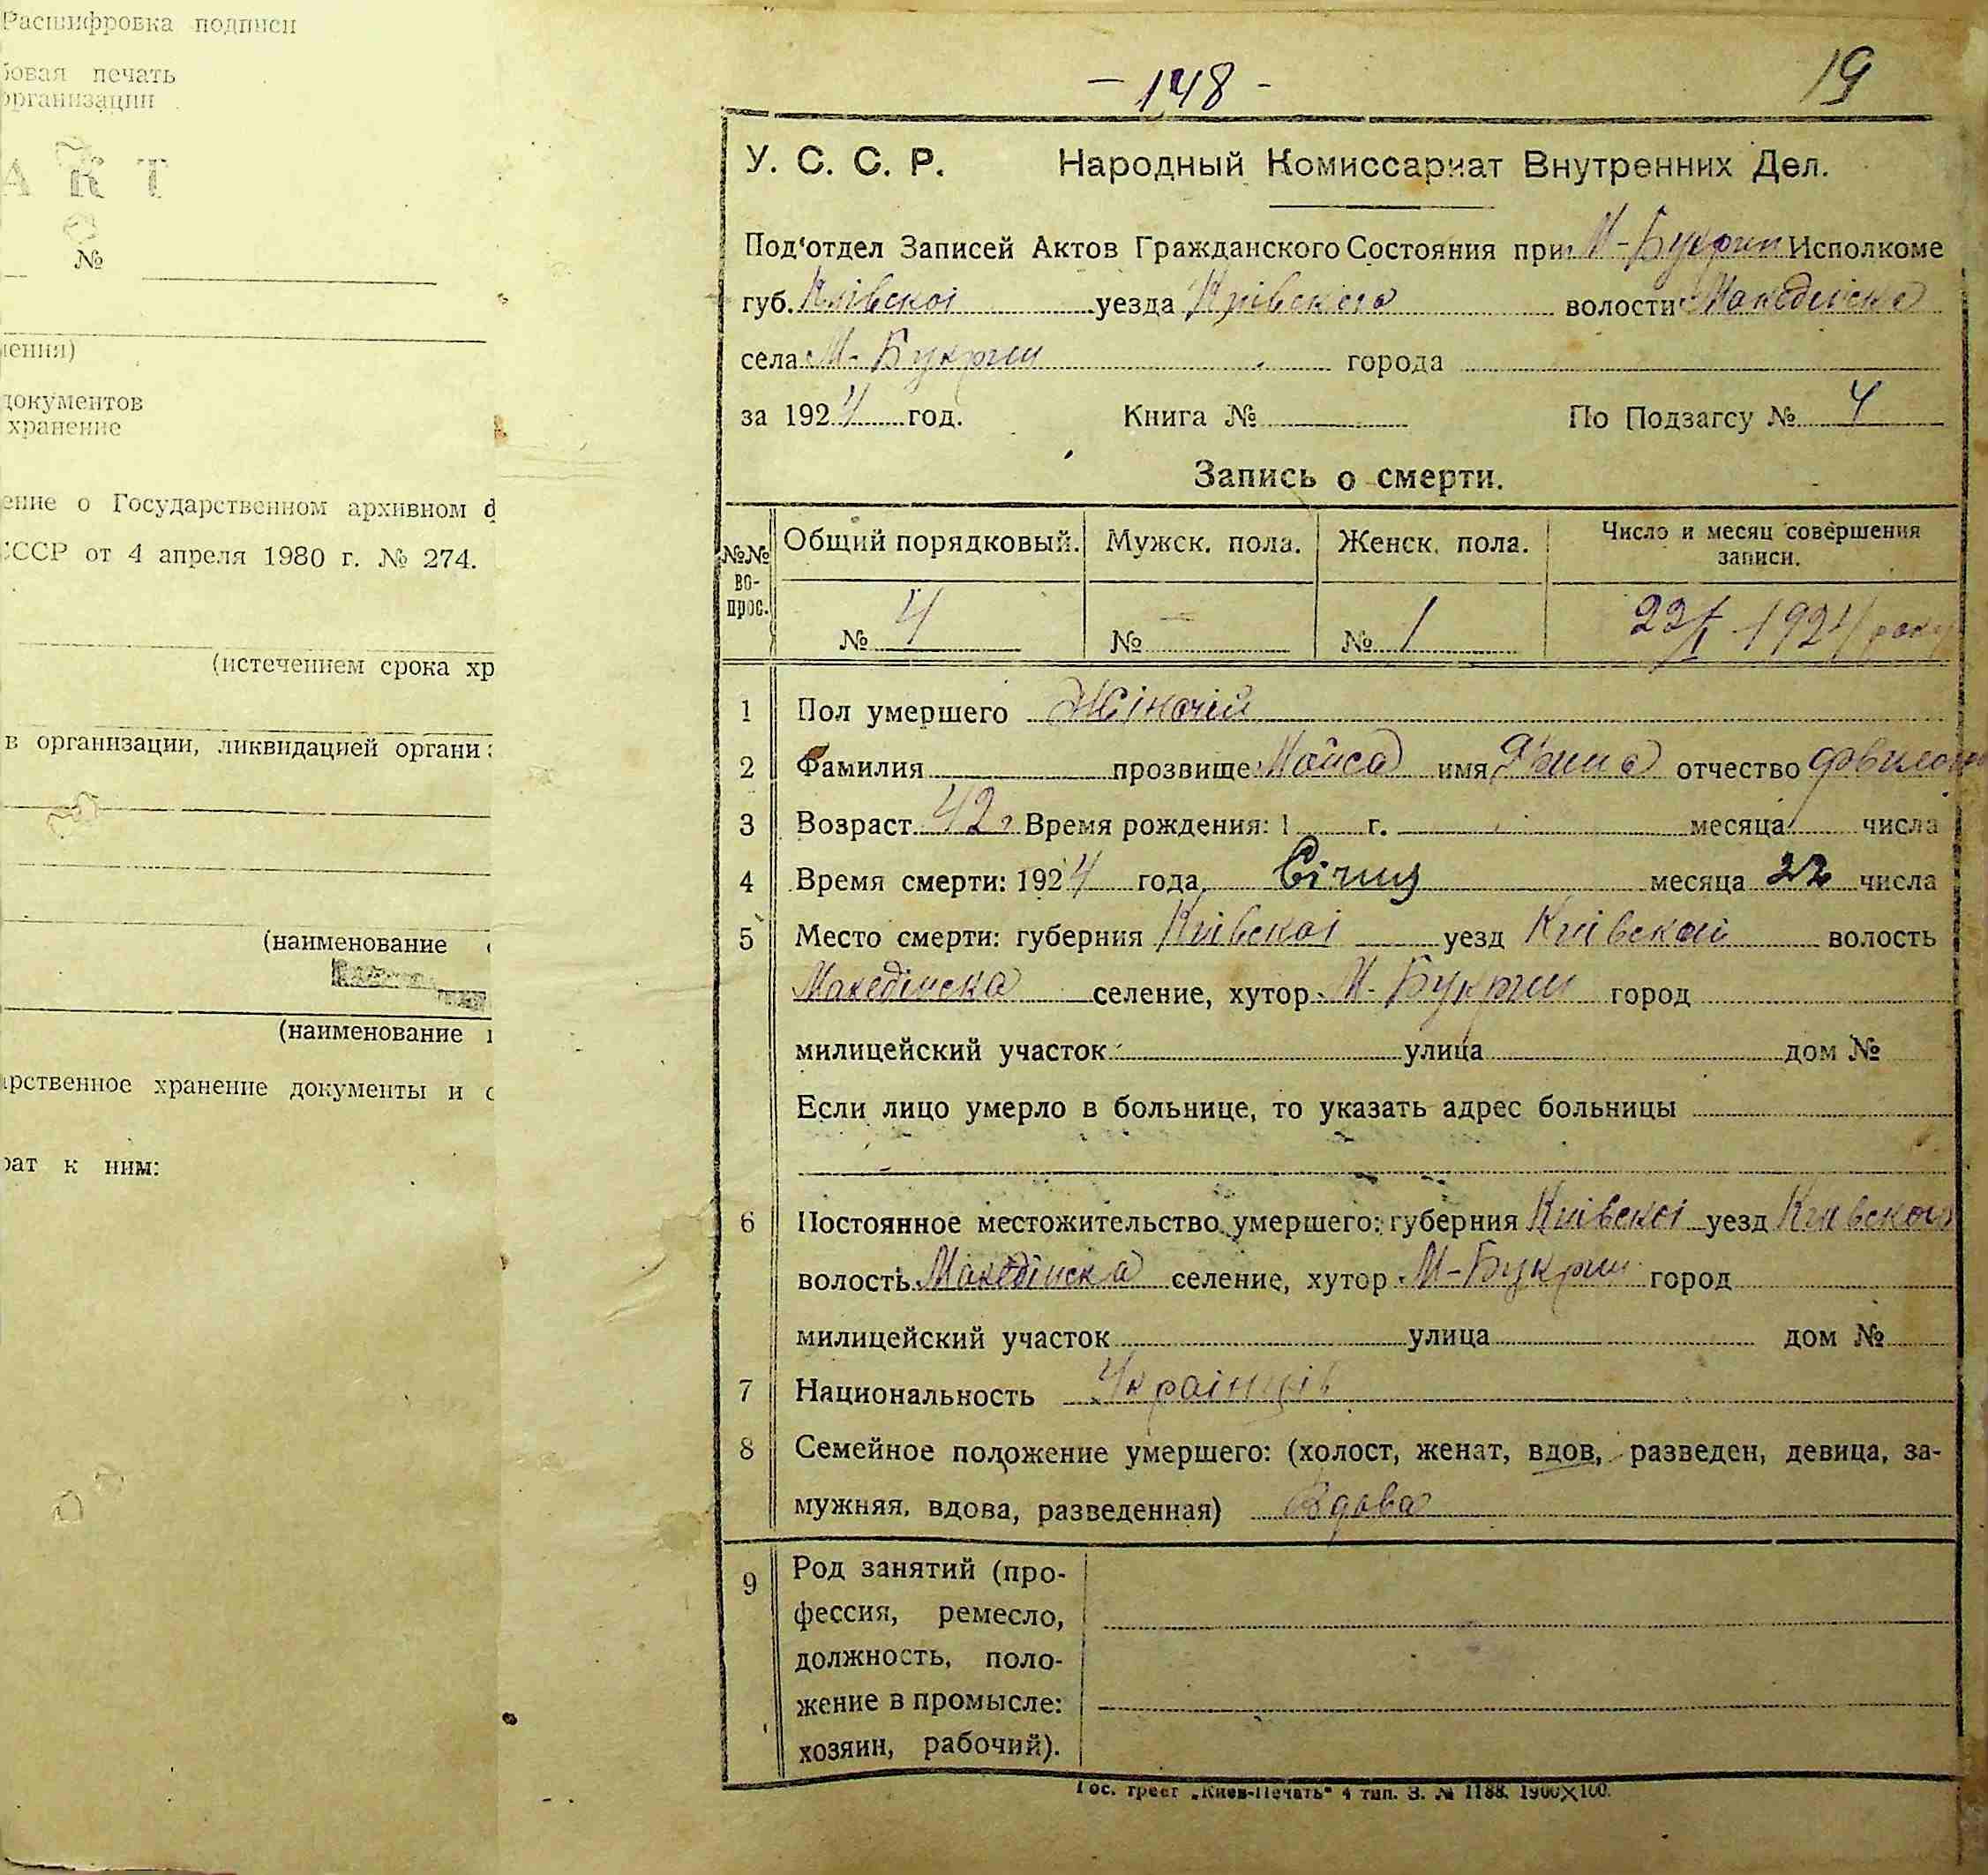 Расшифровка подписи
печать
организации
АКТ
№
документов
хранение
ение о Государственном архивном
СССР от 4 апреля 1980 г. № 274.
(истечением срока хр
в организации, ликвидацией органи
(наименование
(наименование
арственное хранение документы и с
рат к ним:
- 148 -
19
У. С. С. Р. Народный Комиссариат Внутренних Дел.
Под'отдел Записей Актов Гражданского Состояния при М-Букрин Исполкоме
губ. Київскоі уезда Київского волости Македінска
села М-Букрин города
за 1924 год. Книга № По Подзагсу № 4
Запись о смерти.
№№ во-прос. Общий порядковый. Мужск. пола. Женск. пола. Число и месяц совершения записи.
№ 4 № — № 1 22/I 1924 року
1 Пол умершего Жіночій
2 Фамилия прозвище имя отчество
3 Возраст 42 г Время рождения: 1 г. месяца числа
4 Время смерти: 1924 года Січня месяца 22 числа
5 Место смерти: губерния Київскоі уезд Київской волость
Македінска селение, хутор М-Букрин город
милицейский участок улица дом №
Если лицо умерло в больнице, то указать адрес больницы
6 Постоянное местожительство умершего: губерния Київскоі уезд Київского
волость Македінска селение, хутор М-Букрин город
милицейский участок улица дом №
7 Национальность
8 Семейное положение умершего: (холост, женат, вдов, разведен, девица, за-
мужняя, вдова, разведенная) Вдова
9 Род занятий (про-
фессия, ремесло,
должность, поло-
жение в промысле:
хозяин, рабочий).
Гос. трест „Киев-Печать" 4 тип. З. № 1188. 1900×100.